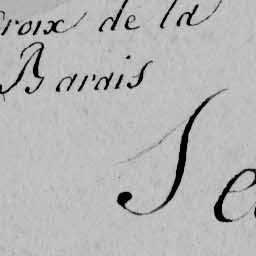 croix de la
Barais
Se